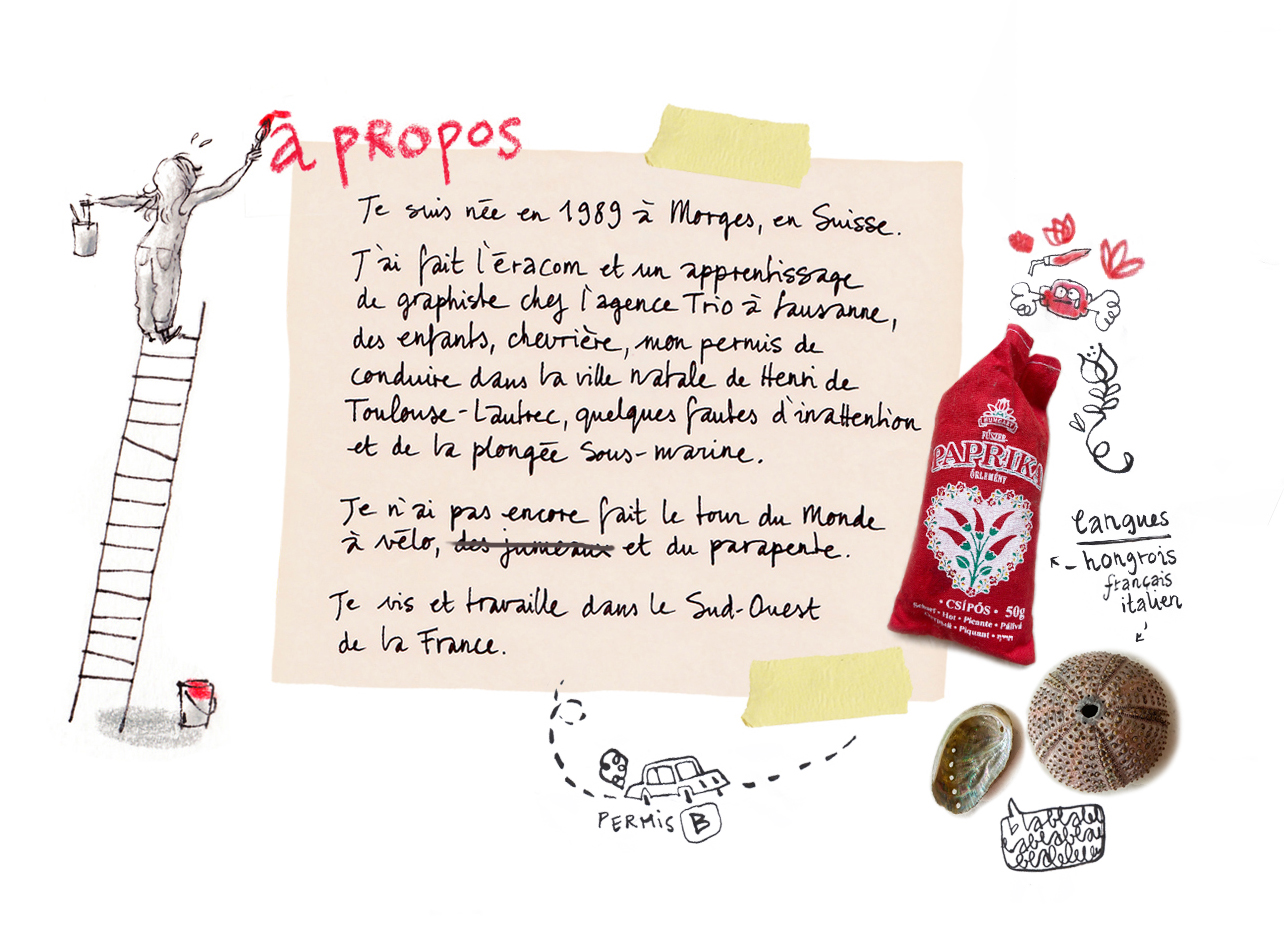 à propos
Je suis née en 1989 à Morges, en Suisse.
J'ai fait l'éracom et un apprentissage
de graphiste chez l'agence Trio à Lausanne,
des enfants, chevrière, mon permis de
conduire dans la ville natale de Henri de
Toulouse-Lautrec, quelques fautes d'inattention
et de la plongée sous-marine.
Je n'ai pas encore fait le tour du Monde
à vélo, des jumeaux et du parapente.
Je vis et travaille dans le Sud-Ouest
de la France.
HUNGARY
FŰSZER-
PAPRIKA
ŐRLEMÉNY
• CSÍPŐS • 50g
• Hot • Picante • Pálivá
• Piquant •
langues
hongrois
français
italien
PERMIS B